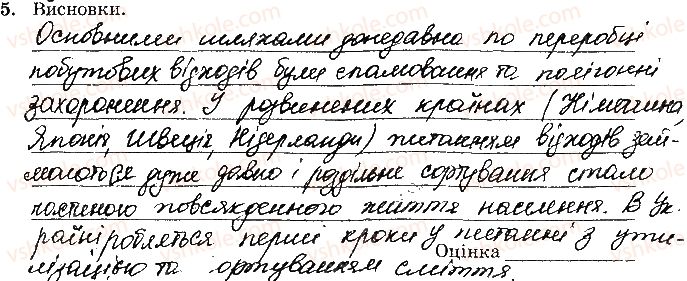 5. Висновки.
Основними шляхами донедавна по переробці
побутових відходів були спалювання та полігонні
захоронення. У розвинених країнах (Німеччина,
Японія, Швеція, Нідерланди) питанням відходів зай-
малося дуже давно і роздільне сортування стало
частиною повсякденного життя населення. В Ук-
раїні робляться перші кроки у питанні з ути-
лізацією та сортуванням сміття.
Оцінка